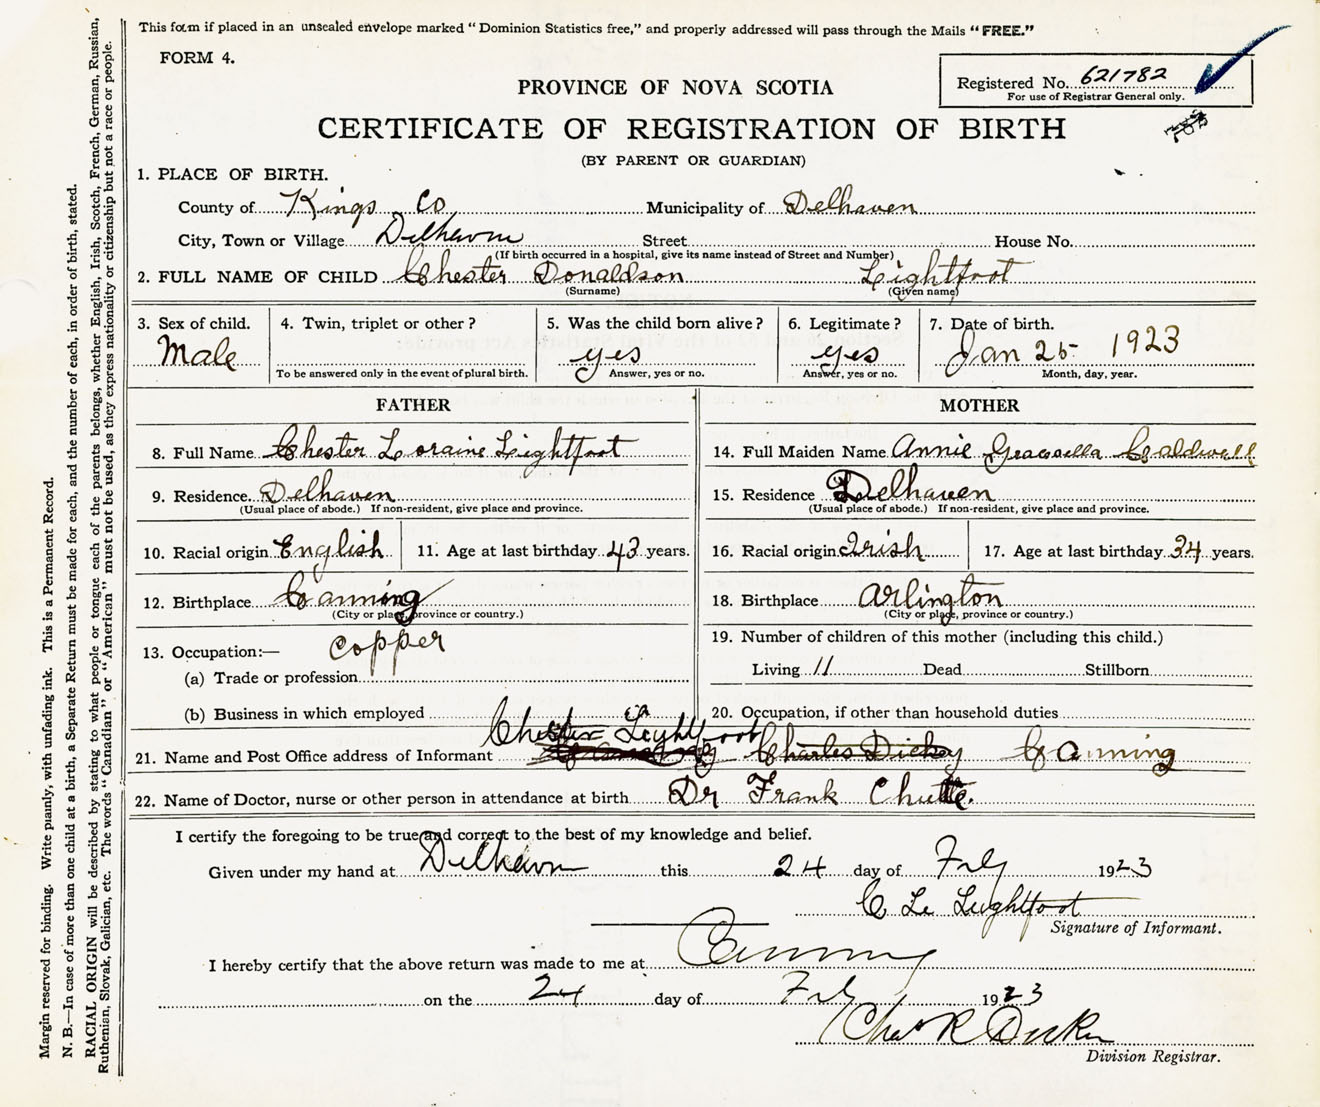 This form if placed in an unsealed envelope marked "Dominion Statistics free," and properly addressed will pass through the Mails "FREE."
FORM 4.
Registered No. 621782
For use of Registrar General only.
PROVINCE OF NOVA SCOTIA
CERTIFICATE OF REGISTRATION OF BIRTH
(BY PARENT OR GUARDIAN)
1. PLACE OF BIRTH.
County of Kings Co Municipality of Delhaven
City, Town or Village Delhaven Street House No.
(If birth occurred in a hospital, give its name instead of Street and Number)
2. FULL NAME OF CHILD Chester Donaldson Lightfoot
(Surname) (Given name)
3. Sex of child. 4. Twin, triplet or other? 5. Was the child born alive? 6. Legitimate? 7. Date of birth.
Male yes yes Jan 25 1923
To be answered only in the event of plural birth. Answer, yes or no. Answer, yes or no. Month, day, year.
FATHER
8. Full Name Chester Loraine Lightfoot
9. Residence. Delhaven
(Usual place of abode.) If non-resident, give place and province.
10. Racial origin English 11. Age at last birthday 43 years.
12. Birthplace Canning
(City or place, province or country.)
13. Occupation:— Copper
(a) Trade or profession
(b) Business in which employed
MOTHER
14. Full Maiden Name Annie Caldwell
15. Residence Delhaven
(Usual place of abode.) If non-resident, give place and province.
16. Racial origin Irish 17. Age at last birthday 34 years.
18. Birthplace Arlington
(City or place, province or country.)
19. Number of children of this mother (including this child.)
Living 11 Dead Stillborn
20. Occupation, if other than household duties
Chester Lightfoot
21. Name and Post Office address of Informant Charles Dickey Canning
22. Name of Doctor, nurse or other person in attendance at birth Dr Frank Chute.
I certify the foregoing to be true and correct to the best of my knowledge and belief.
Given under my hand at Delhaven this 24 day of 1923
C Lightfoot
Signature of Informant.
I hereby certify that the above return was made to me at Canning
on the 24 day of 1923
Chas R
Division Registrar.
Margin reserved for binding. Write plainly, with unfading ink. This is a Permanent Record.
N. B.—In case of more than one child at a birth, a Separate Return must be made for each, and the number of each, in order of birth, stated.
RACIAL ORIGIN will be described by stating to what people or tongue each of the parents belongs, whether English, Irish, Scotch, French, German, Russian,
Ruthenian, Slovak, Galician, etc. The words "Canadian" or "American" must not be used, as they express nationality or citizenship but not a race or people.